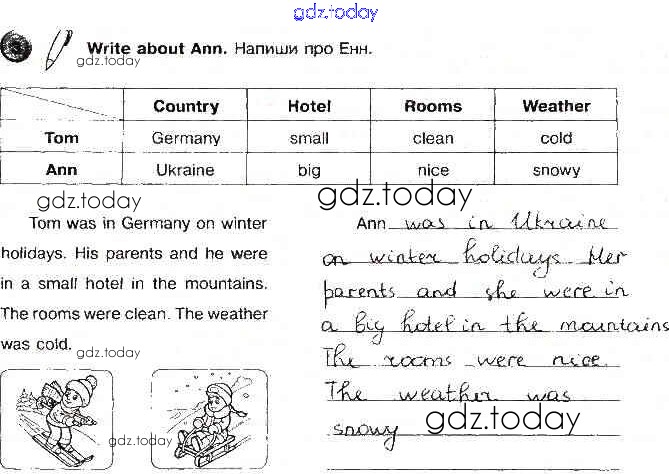 gdz.today
3
Write about Ann. Напиши про Енн.
gdz.today
Country Hotel Rooms Weather
Tom Germany small clean cold
Ann Ukraine big nice snowy
gdz.today
gdz.today
Tom was in Germany on winter
holidays. His parents and he were
in a small hotel in the mountains.
The rooms were clean. The weather
was cold.
gdz.today
Ann was in Ukraine
on winter holidays Her
parents and she were in
a big hotel in the mountains
The rooms were nice.
The weather was
snowy
gdz.today
gdz.today